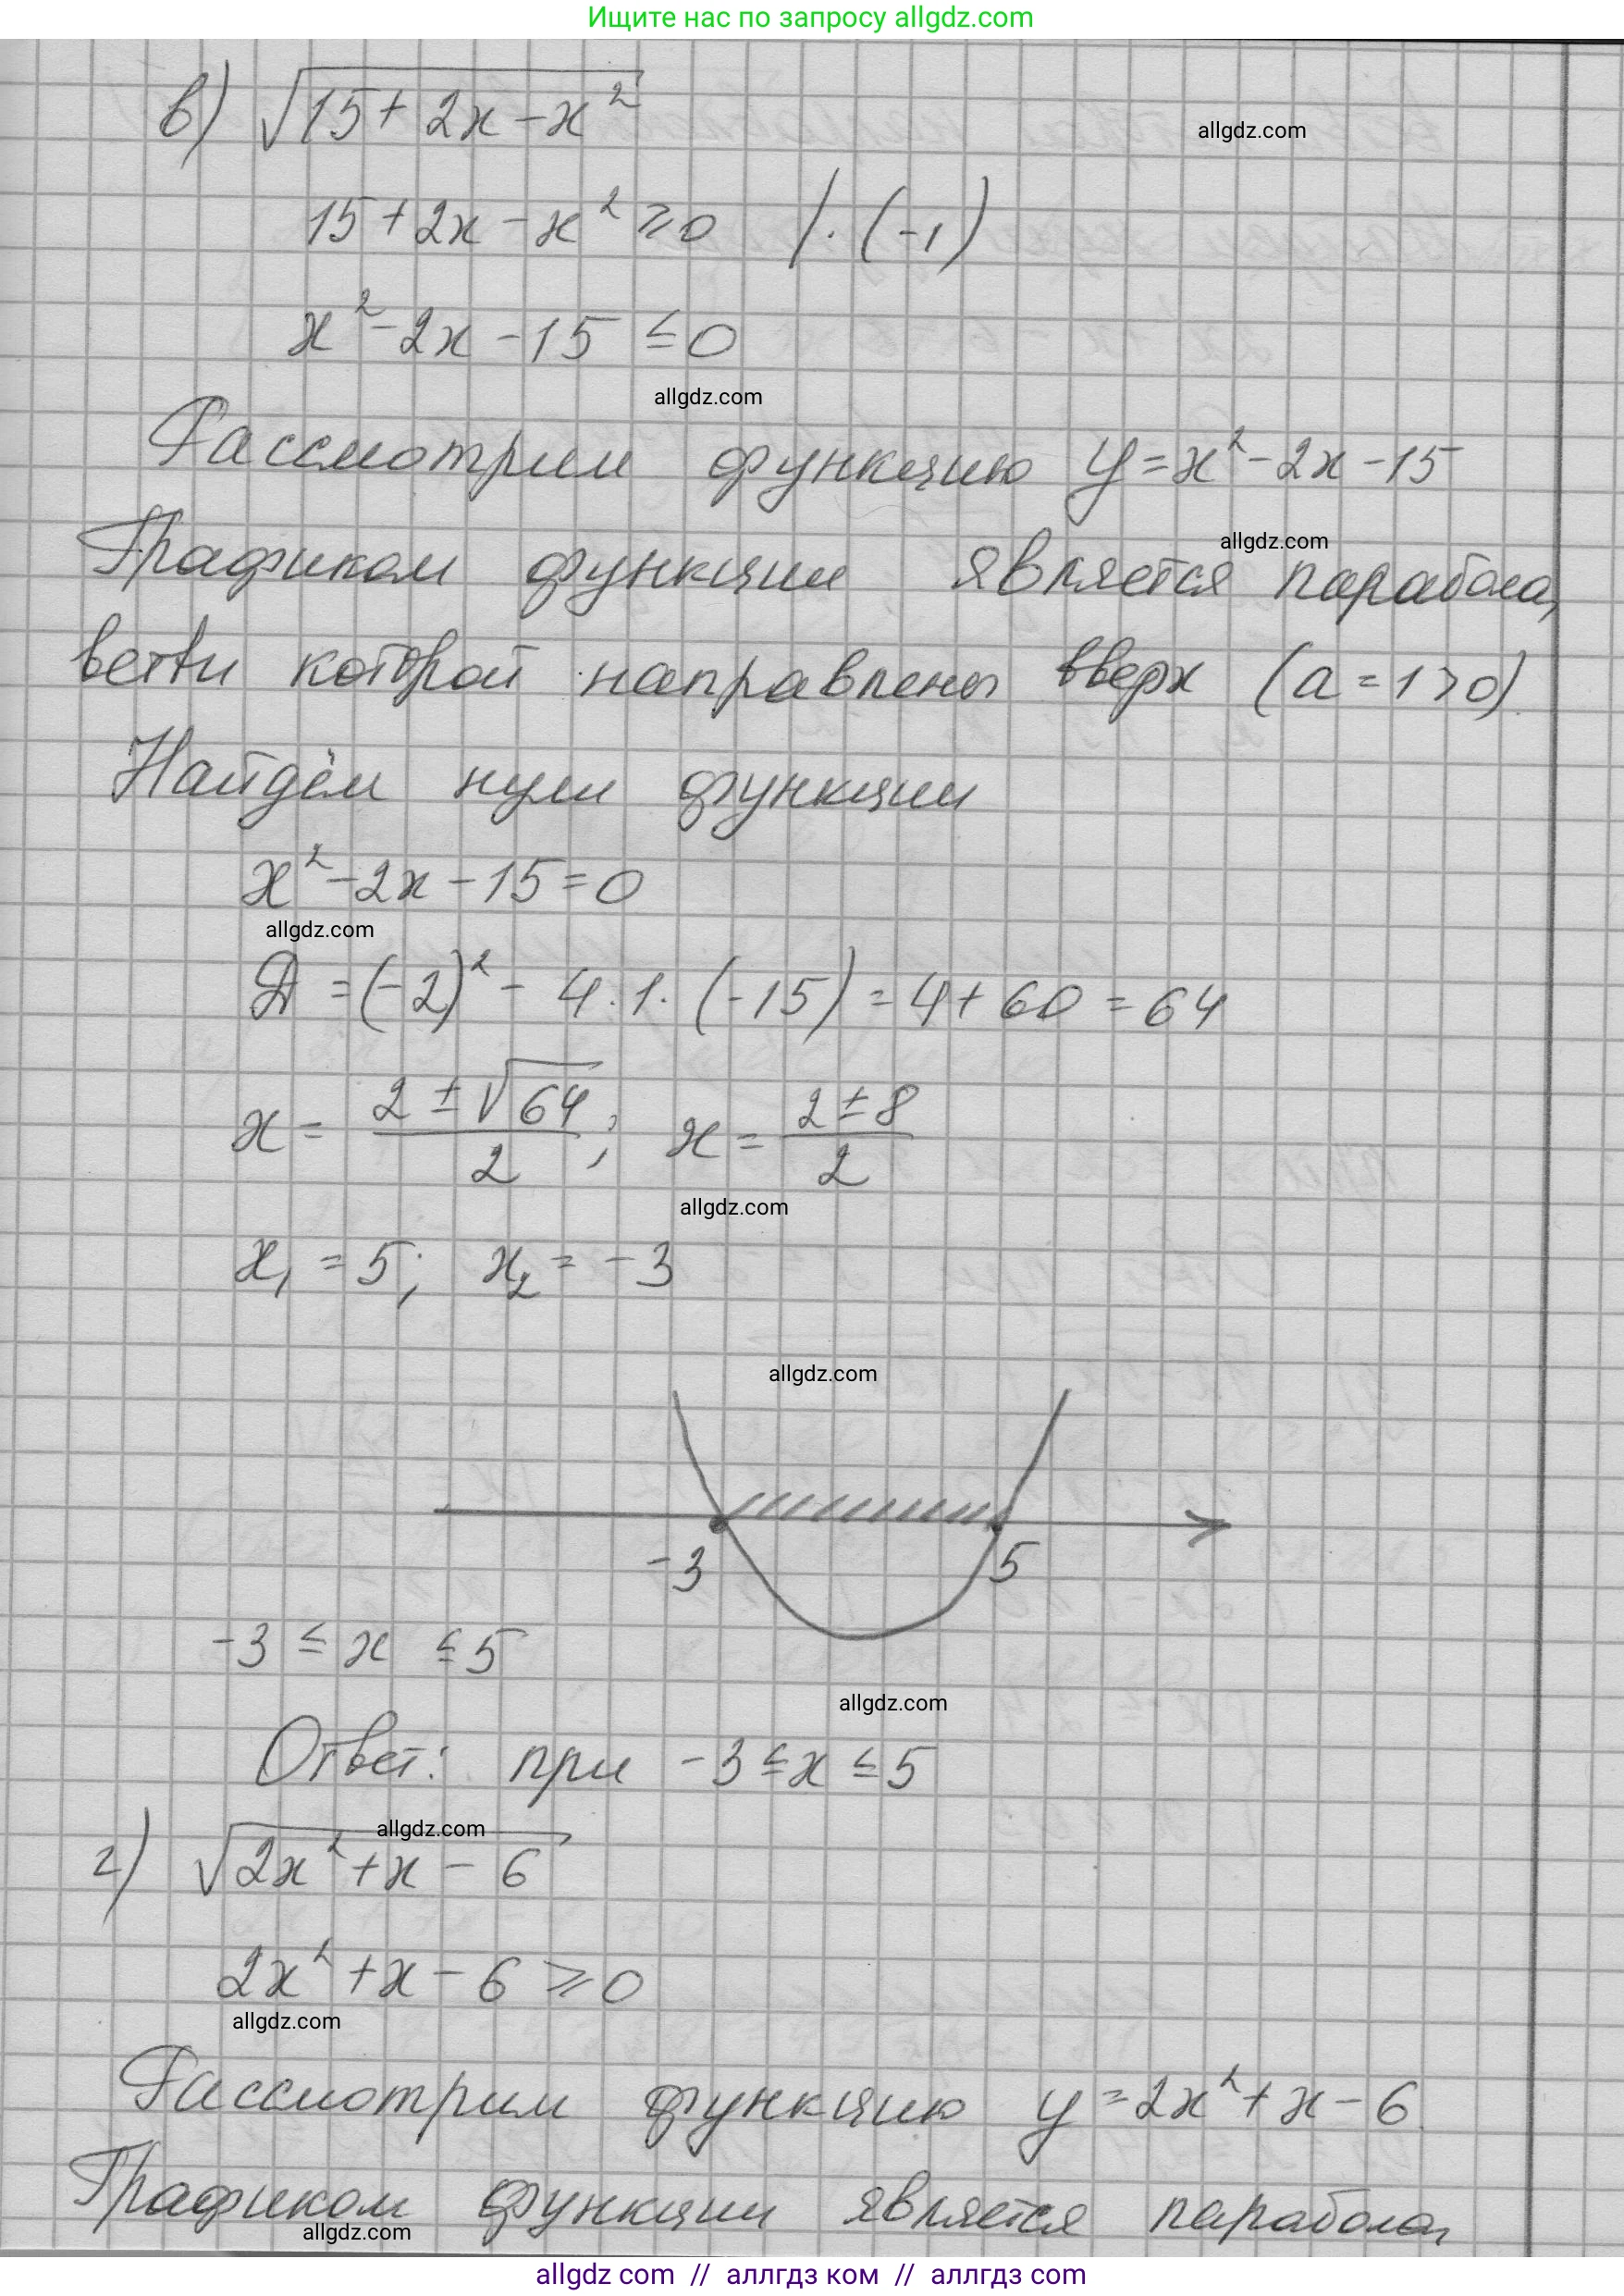 Ищите нас по запросу allgdz.com
в) √(15 + 2x - x²)
allgdz.com
15 + 2x - x² ≥ 0 / · (-1)
x² - 2x - 15 ≤ 0
allgdz.com
Рассмотрим функцию y = x² - 2x - 15
allgdz.com
Графиком функции является парабола,
ветви которой направлены вверх (a = 1 > 0).
Найдём нули функции
x² - 2x - 15 = 0
allgdz.com
Д = (-2)² - 4 · 1 · (-15) = 4 + 60 = 64
x = (2 ± √64)/2 ; x = (2 ± 8)/2
allgdz.com
x₁ = 5; x₂ = -3
allgdz.com
-3 5
-3 ≤ x ≤ 5
allgdz.com
Ответ: при -3 ≤ x ≤ 5
allgdz.com
г) √(2x² + x - 6)
2x² + x - 6 ≥ 0
allgdz.com
Рассмотрим функцию y = 2x² + x - 6
Графиком функции является парабола,
allgdz.com
allgdz com // аллгдз ком // аллгдз com